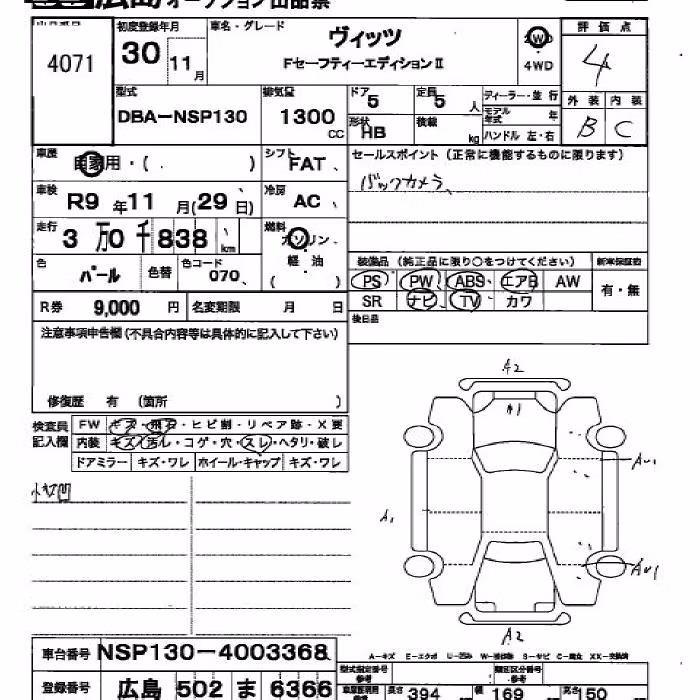 広島 オークション出品票
出品番号 初度登録年月 車名・グレード 評価点
4071 30 11月 ヴィッツ 2W 4
Fセーフティーエディション II 4WD
型式 排気量 ドア 定員 ディーラー・並行 外装 内装
DBA-NSP130 1300 CC 5 5人 モデル年式 年 B C
形状 HB 積載 kg ハンドル 左・右
車歴 自家用・( ) シフト FAT セールスポイント (正常に機能するものに限ります)
車検 R9年11月(29日) 冷房 AC バックカメラ
走行 3万0千838km 燃料 ガソリン 軽油 ( )
色 パール 色替 色コード 070 装備品 (純正品に限り○をつけてください) 新車保証書
PS PW ABS エアB AW 有・無
R券 9,000円 名変期限 月 日 SR ナビ TV カワ
注意事項申告欄(不具合内容等は具体的に記入して下さい) 後日品
修復歴 有 (箇所 )
検査員 FW キズ・飛石・ヒビ割・リペア跡・X要
記入欄 内装 キズ・汚レ・コゲ・穴・スレ・ヘタリ・破レ
ドアミラー キズ・ワレ ホイール・キャップ キズ・ワレ
小キズ凹
A2
A1
AU1
A1
AU1
A2
車台番号 NSP130-4003368
A-キズ E-エクボ U-凹み S-サビ C-腐食 XX-交換済
登録番号 広島 502 ま 6366
型式指定番号 類別区分番号
長さ 394 幅 169 高さ 150